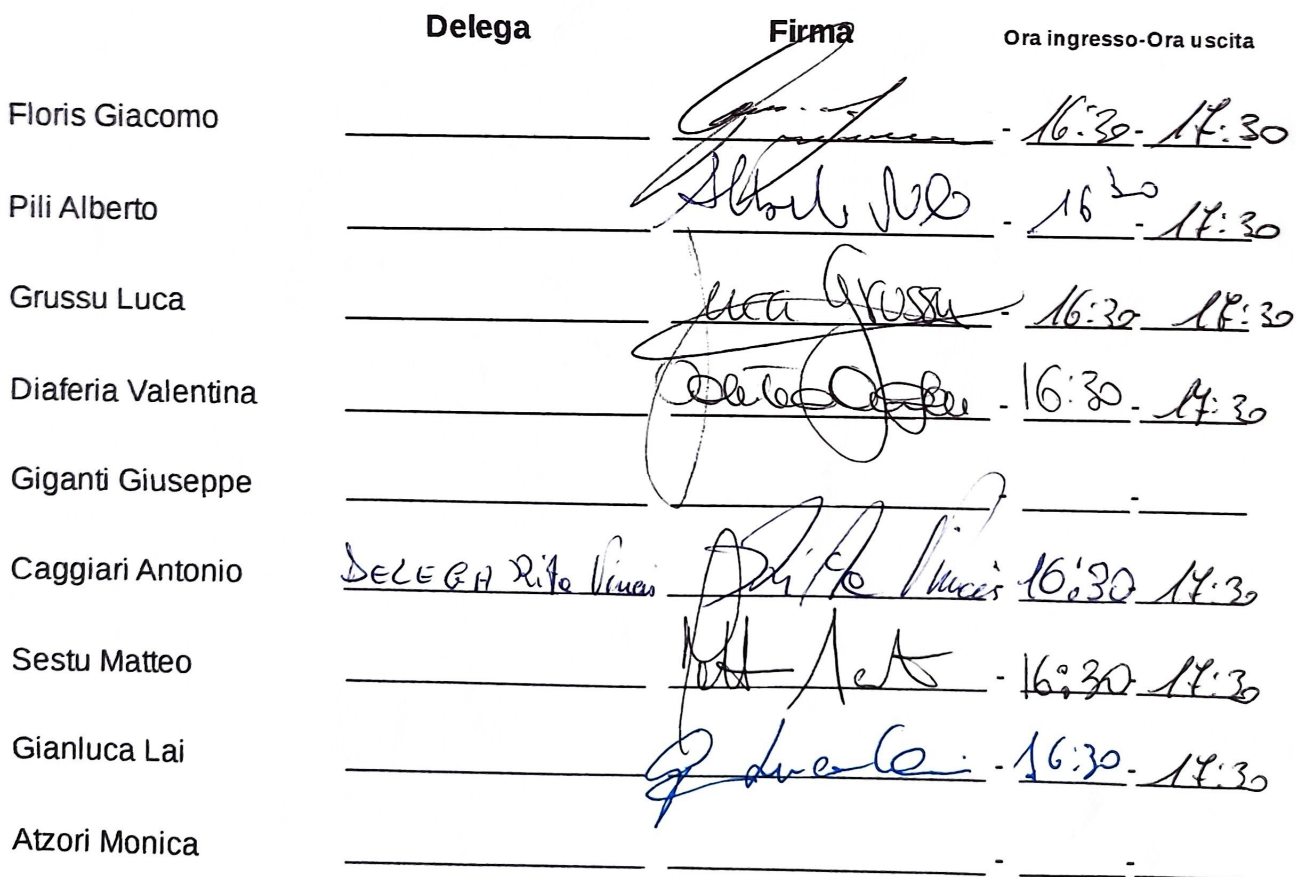 Delega Firma Ora ingresso-Ora uscita
Floris Giacomo - 16:30 - 17:30
Pili Alberto - 16 30 - 17:30
Grussu Luca Luca Grussu - 16:30 17:30
Diaferia Valentina - 16:30 - 17:30
Giganti Giuseppe - -
Caggiari Antonio DELEGA Rita Vincis Rita Vincis 16:30 17:30
Sestu Matteo - 16:30 - 17:30
Gianluca Lai - 16:30 - 17:30
Atzori Monica - -